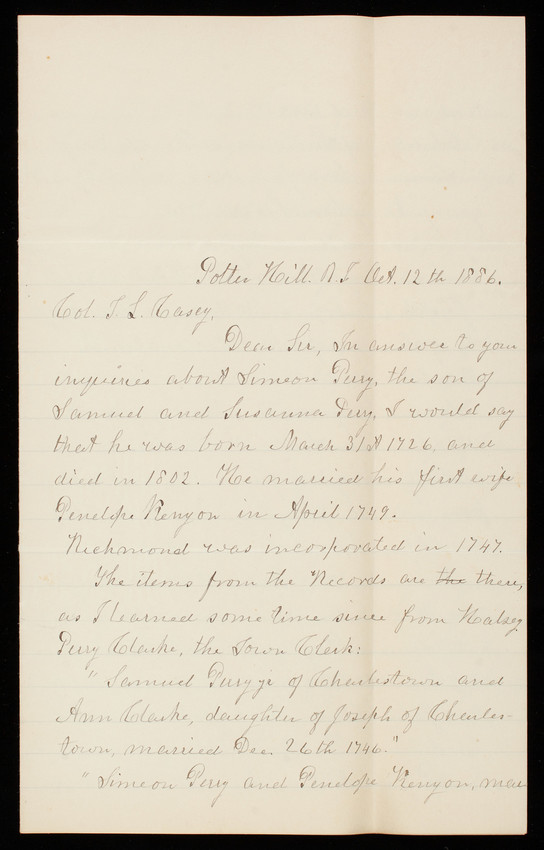 Potter Hill. R. I Oct. 12th 1886.
Col. T. L. Casey,
Dear Sir, In answer to your
inquiries about Simeon Perry, the son of
Samuel and Susanna Perry, I would say
that he was born March 31st 1726 and
died in 1802. He married his first wife
Penelope Kenyon in April 1749.
Richmond was incorporated in 1747.
The items from the Records are the these,
as I learned some time since from Halsey
Perry Clarke, the Town Clerk:
"Samuel Perry jr of Charlestown and
Ann Clarke, daughter of Joseph of Charles-
town, married Dec. 26th 1746."
"Simeon Perry and Penelope Kenyon, mar